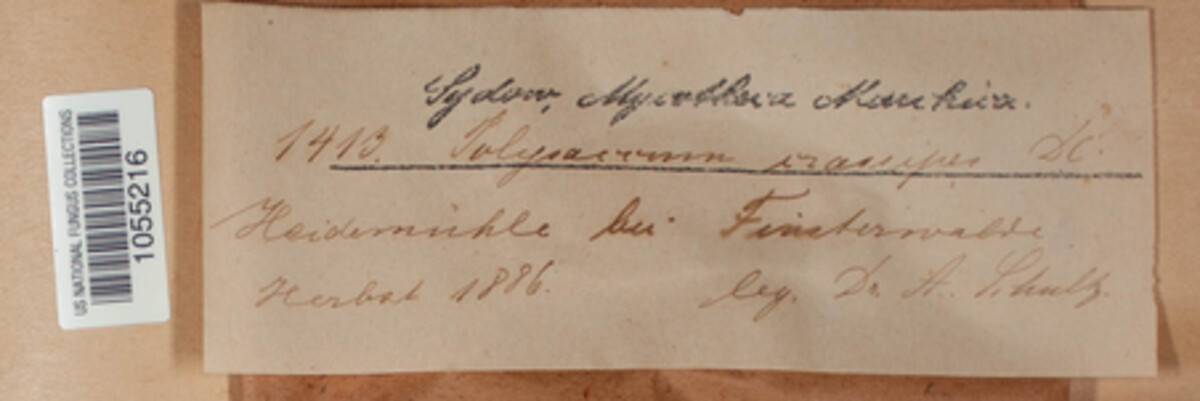 US NATIONAL FUNGUS COLLECTIONS
1055216
Sydow, Mycotheca Marchica.
1413. Polysaccum crassipes DC.
Heidemühle bei Finsterwalde
Herbst 1886. leg. Dr. A. Schultz.